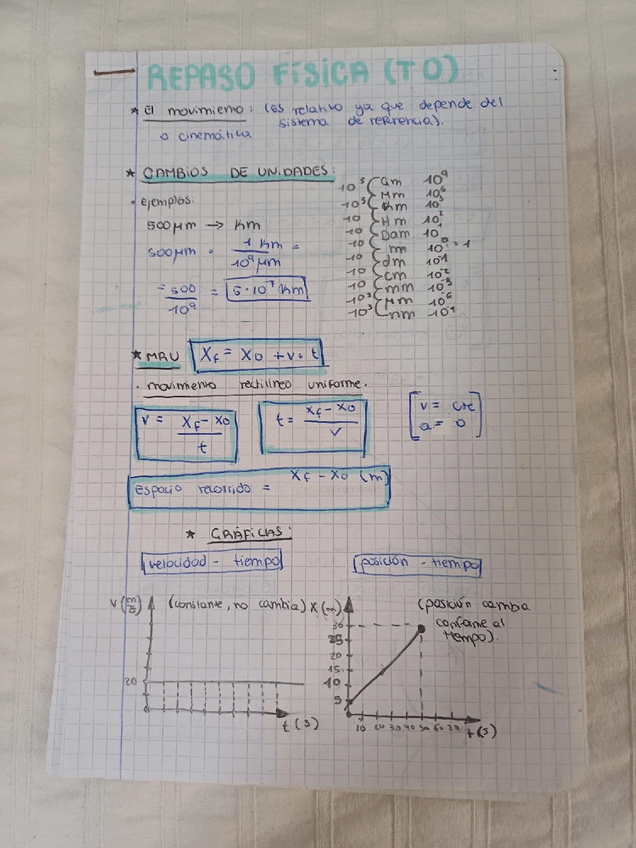 REPASO FÍSICA (T0)
* El movimiento: (es relativo ya que depende del
sistema de referencia).
o cinemática
* CAMBIOS DE UNIDADES:
• ejemplos:
500 μm → Km
500 μm · 1 Km / 10⁹ μm =
= 500 / 10⁹ = 5·10⁻⁷ Km
10³ Gm 10⁹
10³ Mm 10⁶
10 Km 10³
10 Hm 10²
10 Dam 10
10 m 10⁰ = 1
10 dm 10⁻¹
10 cm 10⁻²
10³ mm 10⁻³
10³ μm 10⁻⁶
nm 10⁻⁹
* MRU Xf = X0 + v · t
· movimiento rectilíneo uniforme.
v = xf - x0 / t
t = xf - x0 / v
v = cte
a = 0
espacio recorrido = xf - x0 (m)
* GRÁFICAS:
velocidad - tiempo
posición - tiempo
V (m/s) (constante, no cambia)
20
t (s)
X (m) (posición cambia
conforme al
tiempo).
30
25
20
15
10
5
10 20 30 40 50 60 70 t (s)